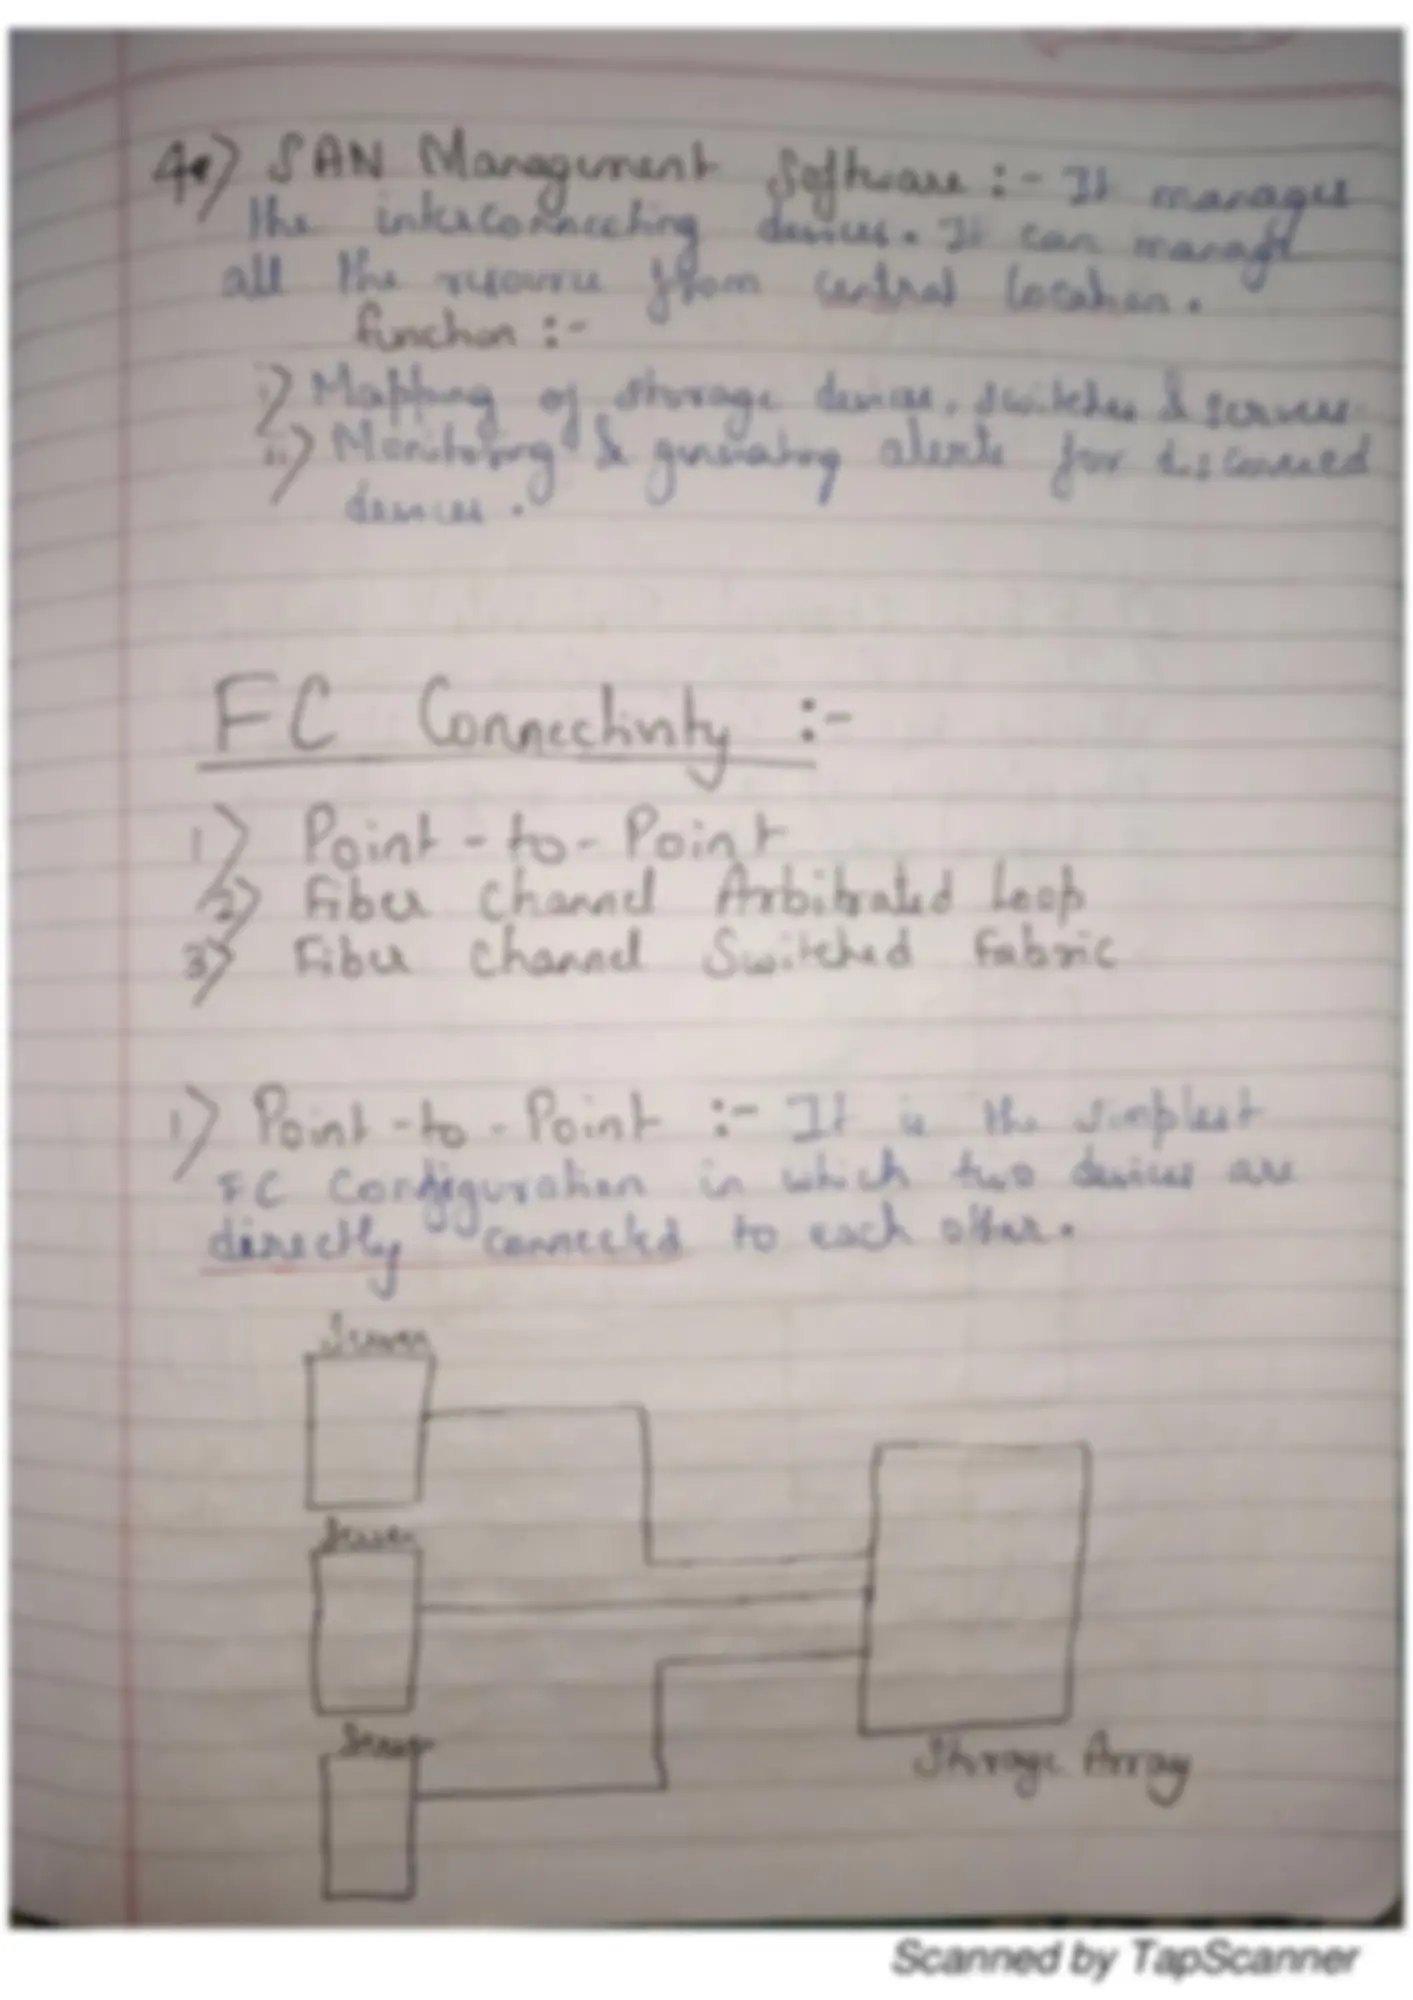 4) SAN Management Software :- It manages
the interconnecting devices. It can manage
all the resource from central location.
function :-
i) Mapping of storage devices, switches & servers
ii) Monitoring & generating alerts for
devices.
FC Connectivity :-
1) Point-to-Point
2) Fiber Channel Arbitrated Loop
3) Fiber Channel Switched Fabric
1) Point-to-Point :- It is the simplest
FC Configuration in which two devices are
directly connected to each other.
Server
Server
Server
Storage Array
Scanned by TapScanner